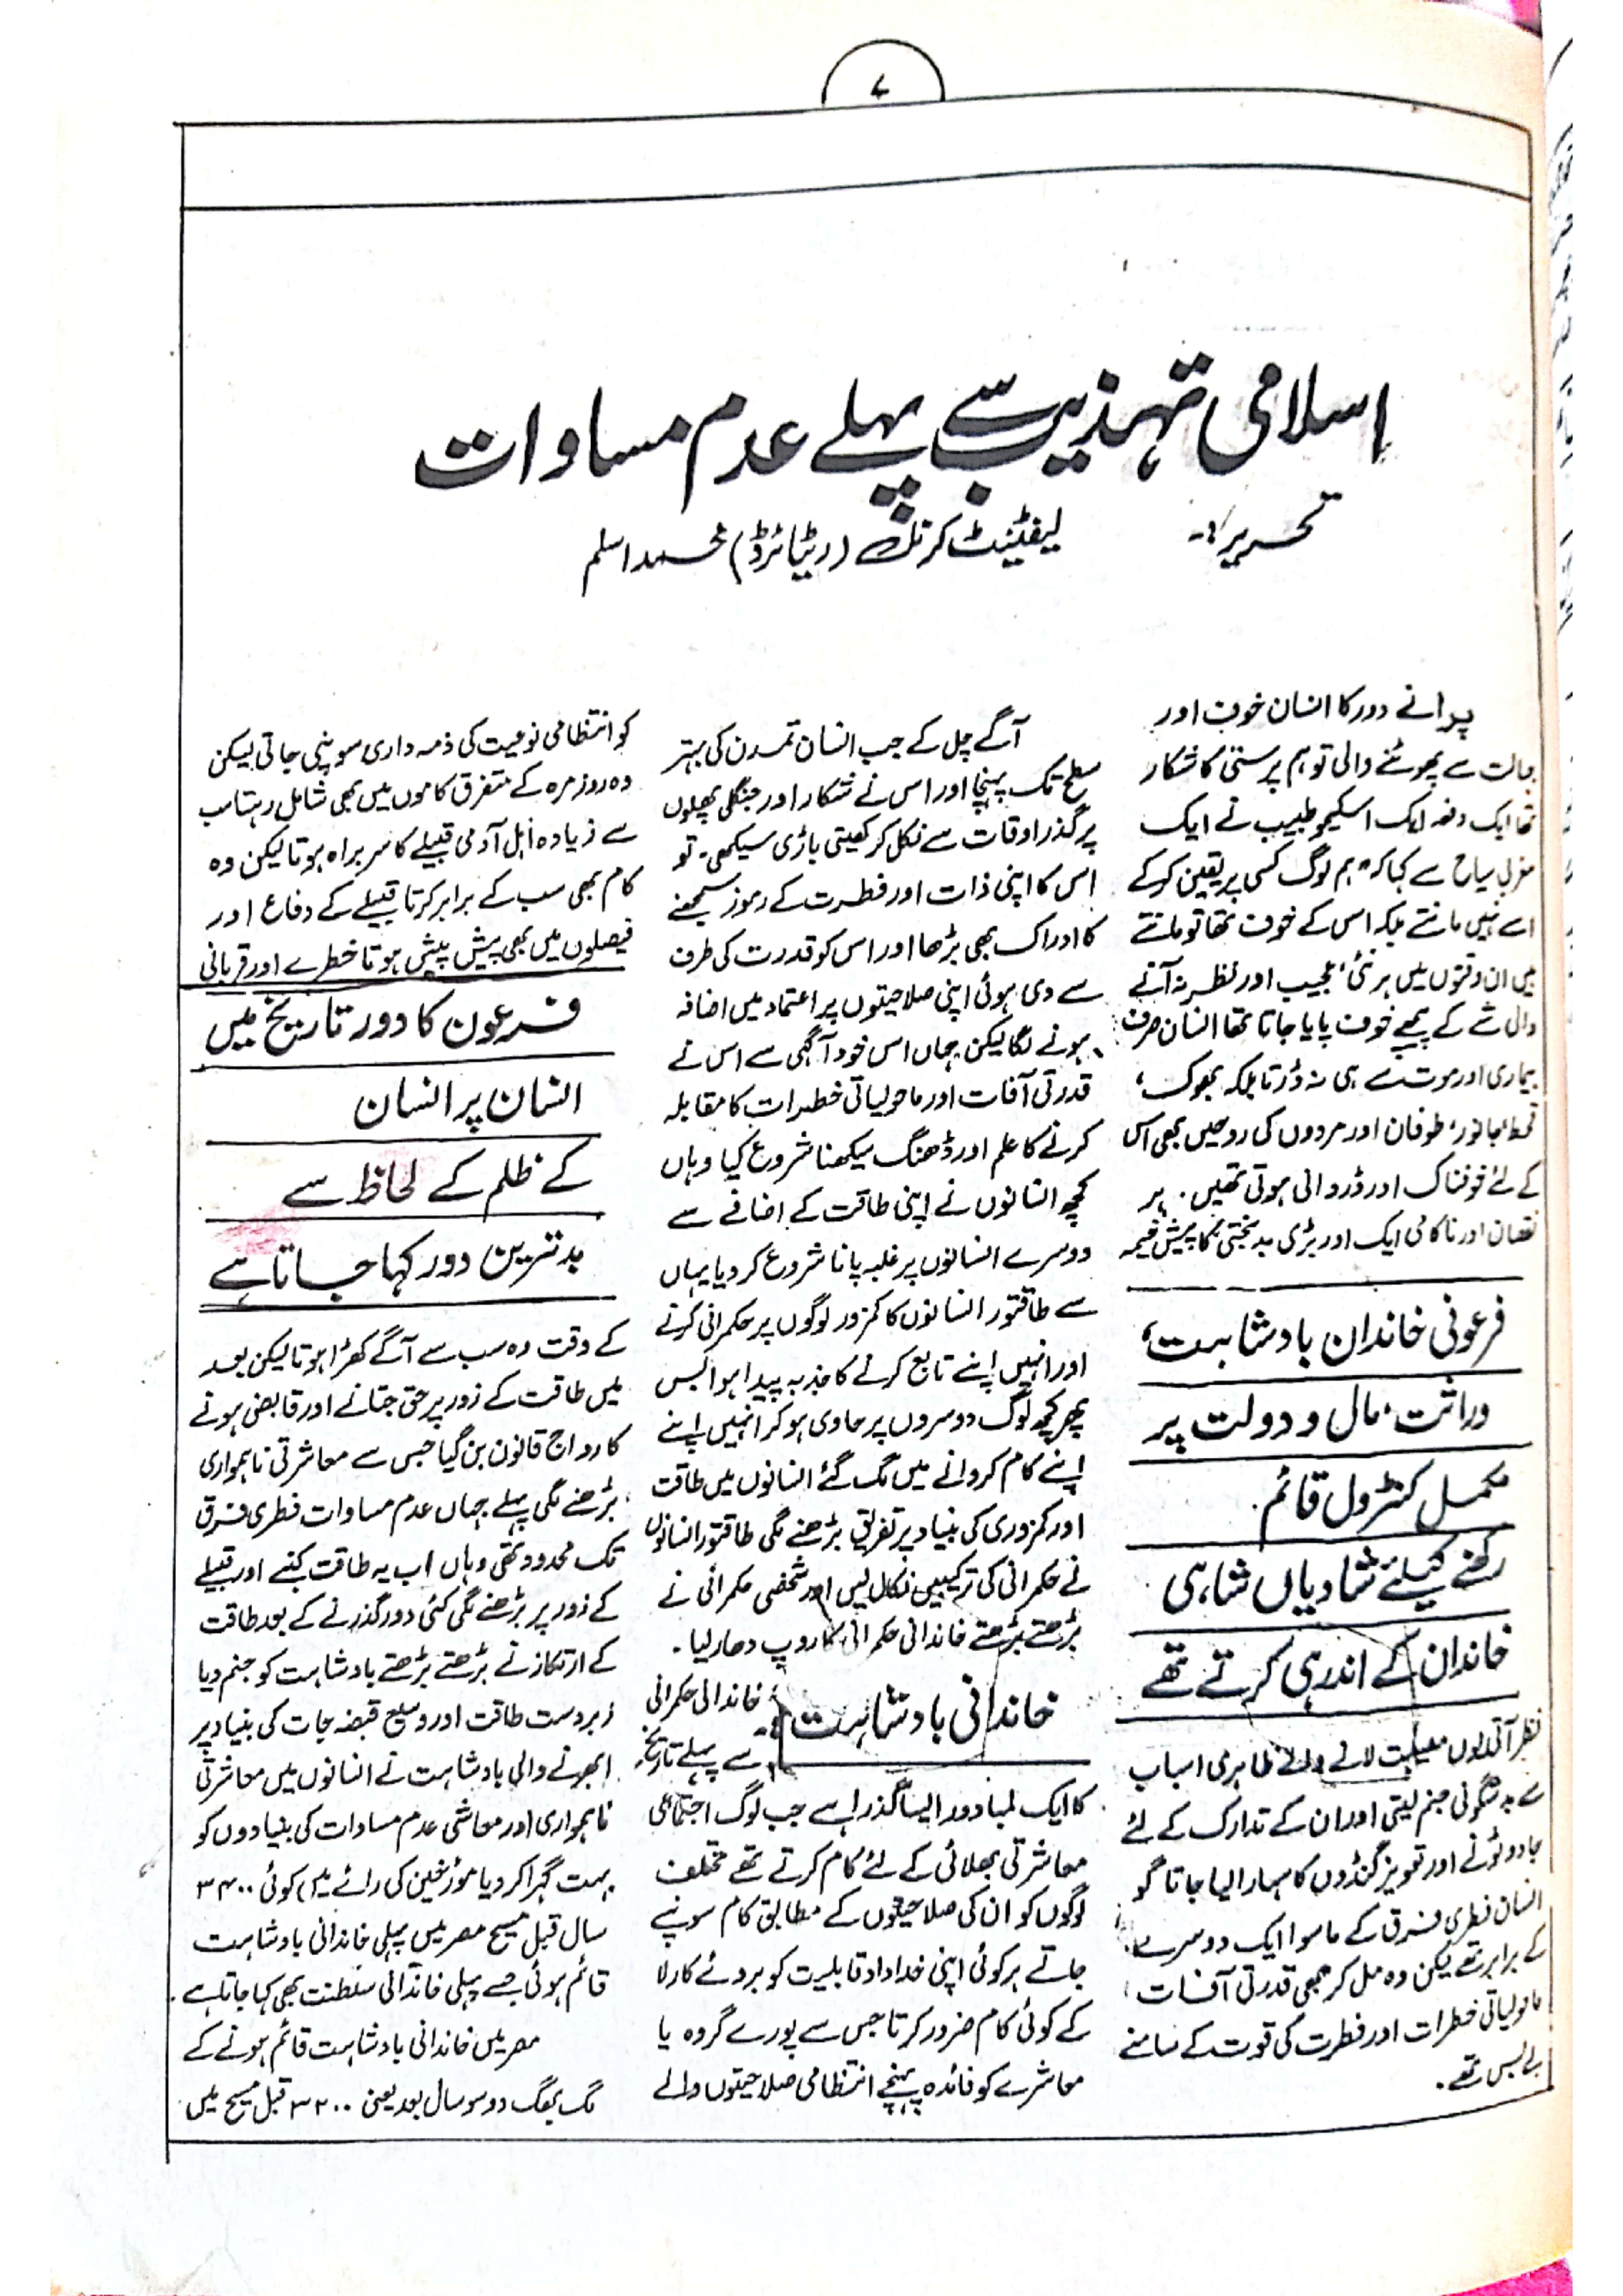 ۷
اسلامی تہذیب سے پہلے عدم مساوات
تحریر:۔ لیفٹیننٹ کرنل (ریٹائرڈ) محمد اسلم
پرانے دور کا انسان خوف اور
جہالت سے پھوٹنے والی توہم پرستی کا شکار
تھا ایک دفعہ ایک اسکیمو طبیب نے ایک
مغربی سیاح سے کہا کہ "ہم لوگ کسی پر یقین کرکے
اسے نہیں مانتے بلکہ اس کے خوف تھا تو مانتے
ہیں ان وقتوں میں ہر نئی، عجیب اور نظر نہ آنے
والی شے کے پیچھے خوف پایا جاتا تھا انسان صرف
بیماری اور موت سے ہی نہ ڈرتا بلکہ بھوک،
قحط، جانور، طوفان اور مردوں کی روحیں بھی اس
کے لئے خوفناک اور ڈروانی ہوتی تھیں۔ ہر
نقصان اور ناکامی ایک اور بڑی بدبختی کا پیش خیمہ
فرعونی خاندان بادشاہت،
وراثت، مال و دولت پر
مکمل کنٹرول قائم
رکھنے کیلئے شادیاں شاہی
خاندان کے اندر ہی کرتے تھے
نظر آتی یوں مصیبت لانے والے ظاہری اسباب
سے بدشگونی جنم لیتی اور ان کے تدارک کے لئے
جادو ٹونے اور تعویز گنڈوں کا سہارا لیا جاتا گو
انسان فطری فرق کے ماسوا ایک دوسرے
کے برابر تھے لیکن وہ مل کر بھی قدرتی آفات
ماحولیاتی خطرات اور فطرت کی قوت کے سامنے
بے بس تھے۔
آگے چل کے جب انسان تمدن کی بہتر
سطح تک پہنچا اور اس نے شکار اور جنگلی پھلوں
پر گذر اوقات سے نکل کر کھیتی باڑی سیکھی۔ تو
اس کا اپنی ذات اور فطرت کے رموز سمجھنے
کا ادراک بھی بڑھا اور اس کو قدرت کی طرف
سے دی ہوئی اپنی صلاحیتوں پر اعتماد میں اضافہ
ہونے لگا لیکن جہاں اس خود آگہی سے اس نے
قدرتی آفات اور ماحولیاتی خطرات کا مقابلہ
کرنے کا علم اور ڈھنگ سیکھنا شروع کیا وہاں
کچھ انسانوں نے اپنی طاقت کے اضافے سے
دوسرے انسانوں پر غلبہ پانا شروع کر دیا یہاں
سے طاقتور انسانوں کا کمزور لوگوں پر حکمرانی کرنے
اور انہیں اپنے تابع کرنے کا جذبہ پیدا ہوا بس
پھر کچھ لوگ دوسروں پر حاوی ہو کر انہیں اپنے
اپنے کام کروانے میں لگ گئے انسانوں میں طاقت
اور کمزوری کی بنیاد پر تفریق بڑھنے لگی طاقتور انسانوں
نے حکمرانی کی ترکیبیں نکال لیں اور شخصی حکمرانی نے
بڑھتے بڑھتے خاندانی حکمرانی کا روپ دھار لیا۔
خاندانی بادشاہت:۔ خاندانی حکمرانی
سے پہلے تاریخ
کا ایک لمبا دور ایسا گذرا ہے جب لوگ اجتماعی
معاشرتی بھلائی کے لئے کام کرتے تھے مختلف
لوگوں کو ان کی صلاحیتوں کے مطابق کام سونپے
جاتے ہر کوئی اپنی خداداد قابلیت کو بروئے کار لا
کے کوئی کام ضرور کرتا جس سے پورے گروہ یا
معاشرے کو فائدہ پہنچے انتظامی صلاحیتوں والے
کو انتظامی نوعیت کی ذمہ داری سونپی جاتی لیکن
وہ روزمرہ کے متفرق کاموں میں بھی شامل رہتا سب
سے زیادہ اہل آدمی قبیلے کا سربراہ ہوتا لیکن وہ
کام بھی سب کے برابر کرتا قبیلے کے دفاع اور
فیصلوں میں بھی پیش پیش ہوتا خطرے اور قربانی
فرعون کا دور تاریخ میں
انسان پر انسان
کے ظلم کے لحاظ سے
بدترین دور کہا جاتا ہے
کے وقت وہ سب سے آگے کھڑا ہوتا لیکن بعد
میں طاقت کے زور پر حق جتانے اور قابض ہونے
کا رواج قانون بن گیا جس سے معاشرتی ناہمواری
بڑھنے لگی پہلے جہاں عدم مساوات فطری فرق
تک محدود تھی وہاں اب یہ طاقت کنبے اور قبیلے
کے زور پر بڑھنے لگی کئی دور گذرنے کے بعد طاقت
کے ارتکاز نے بڑھتے بڑھتے بادشاہت کو جنم دیا
زبردست طاقت اور وسیع قبضہ جات کی بنیاد پر
ابھرنے والی بادشاہت نے انسانوں میں معاشرتی
ناہمواری اور معاشی عدم مساوات کی بنیادوں کو
بہت گہرا کر دیا مؤرخین کی رائے میں کوئی ۳۴۰۰
سال قبل مسیح مصر میں پہلی خاندانی بادشاہت
قائم ہوئی جسے پہلی خاندانی سلطنت بھی کہا جاتا ہے۔
مصر میں خاندانی بادشاہت قائم ہونے کے
لگ بھگ دو سو سال بعد یعنی ۳۲۰۰ قبل مسیح میں